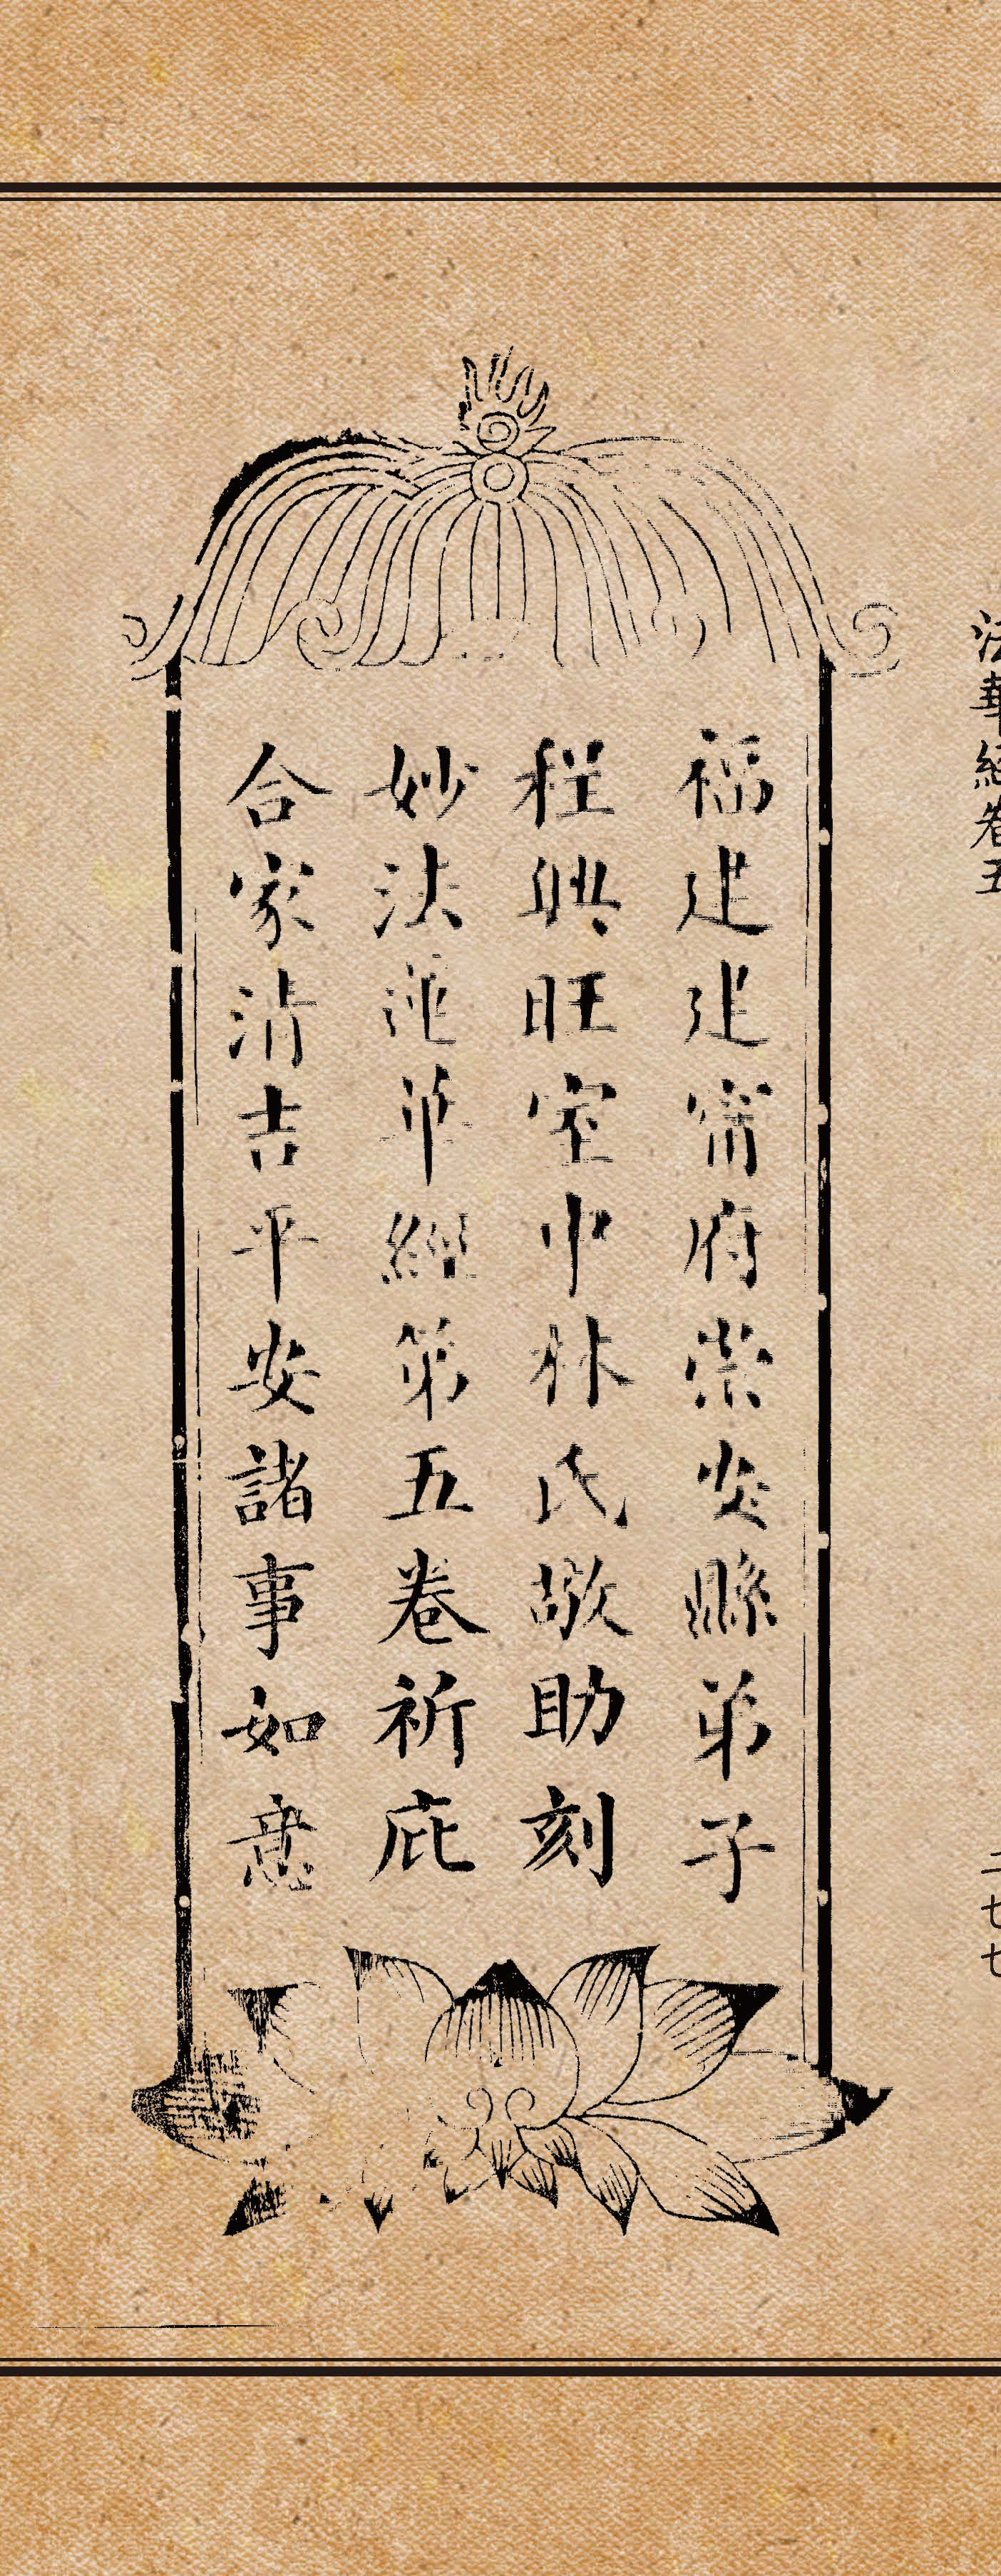 法華經卷五 二七七
福建建甯府崇安縣弟子
程興旺室中林氏敬助刻
妙法蓮華經第五卷祈庇
合家清吉平安諸事如意